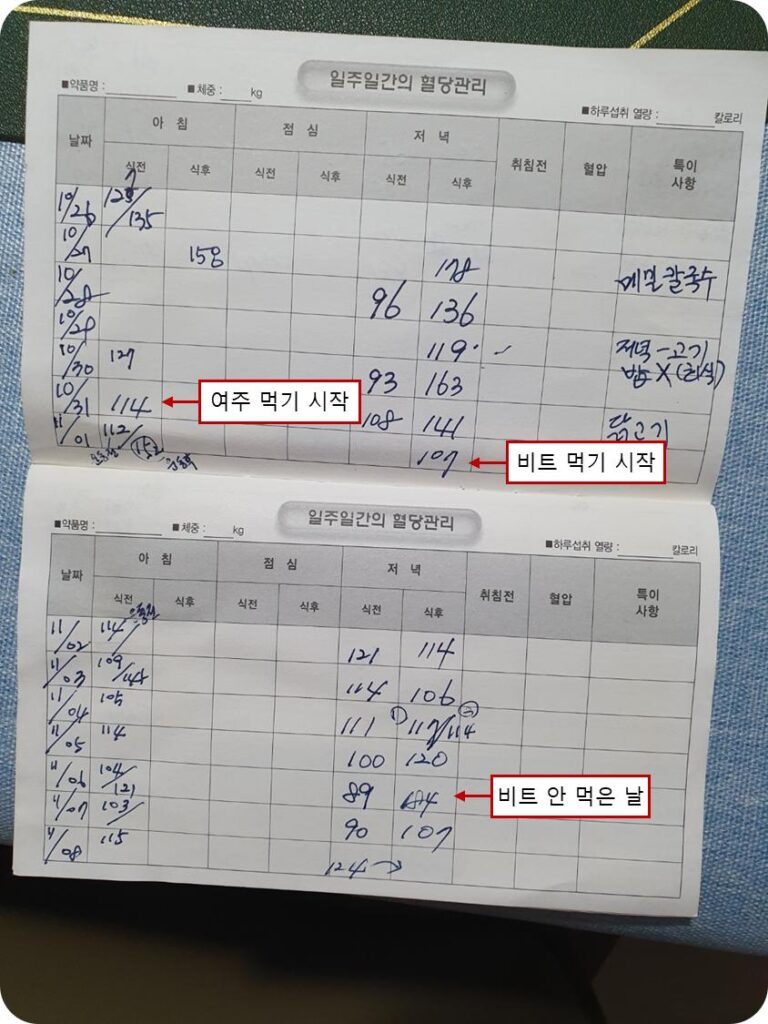 일주일간의 혈당관리
■약품명 : ■체중 : kg ■하루섭취 열량 : 칼로리
날짜 아 침 점 심 저 녁 취침전 혈압 특이 사항
식전 식후 식전 식후 식전 식후
10/26 125/135
10/27 158 178 메밀칼국수
10/28 96 136
10/29 119 저녁-고기
밥 X (회식)
10/30 127 93 163
10/31 114 여주 먹기 시작 108 141 닭고기
11/01 112/152 107 비트 먹기 시작
운동후
일주일간의 혈당관리
■약품명 : ■체중 : kg ■하루섭취 열량 : 칼로리
날짜 아 침 점 심 저 녁 취침전 혈압 특이 사항
식전 식후 식전 식후 식전 식후
운동전
11/02 114/ 121 114
11/03 109/144 114 106
11/04 105 111 ① 117/114 ②
11/05 114 100 120
11/06 104/121 89 184 비트 안 먹은 날
11/07 103/ 90 107
11/08 115 124 →